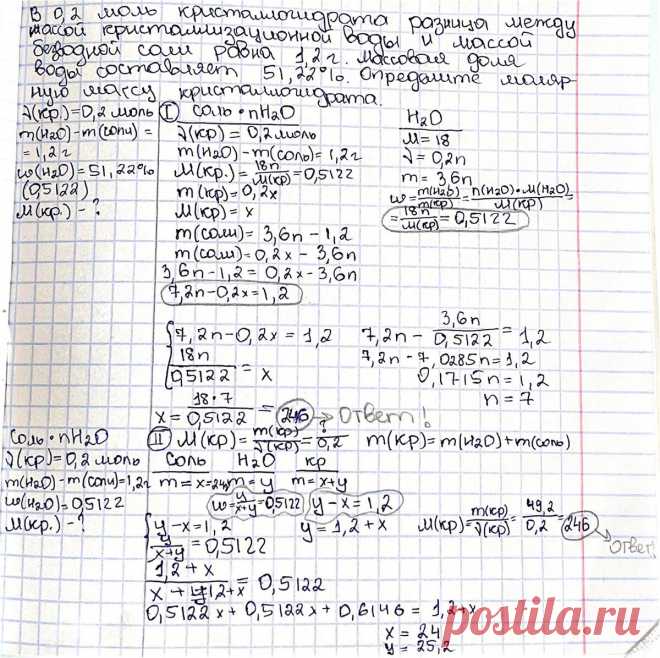 В 0,2 моль кристаллогидрата разница между
массой кристаллизационной воды и массой
безводной соли равна 1,2 г. Массовая доля
воды составляет 51,22%. Определите моляр-
ную массу кристаллогидрата.
ν(кр)=0,2 моль
m(H2O)-m(соли)=
=1,2г
ω(H2O)=51,22%
(0,5122)
M(кр.)-?
I соль·nH2O
ν(кр)=0,2моль
m(H2O)-m(соль)=1,2г
M(кр.)=18n/M(кр)=0,5122
m(кр)=0,2x
M(кр)=x
m(соли)=3,6n-1,2
m(соли)=0,2x-3,6n
3,6n-1,2=0,2x-3,6n
7,2n-0,2x=1,2
H2O
M=18
ν=0,2n
m=3,6n
ω=m(H2O)/m(кр)=n(H2O)·M(H2O)/M(кр)=
=18n/M(кр)=0,5122
7,2n-0,2x=1,2
18n/0,5122=x
x=18·7/0,5122=246→Ответ!
7,2n-3,6n/0,5122=1,2
7,2n-7,0285n=1,2
0,1715n=1,2
n=7
соль·nH2O
ν(кр)=0,2моль
m(H2O)-m(соли)=1,2г
ω(H2O)=0,5122
M(кр.)-?
II M(кр)=m(кр)/ν(кр)=?/0,2 m(кр)=m(H2O)+m(соль)
соль H2O кр
m=x=24г m=y m=x+y
ω=y/x+y=0,5122 y-x=1,2
y-x=1,2 y=1,2+x
y/x+y=0,5122
1,2+x/x+1,2+x=0,5122
0,5122x+0,5122x+0,6146=1,2+x
x=24
y=25,2
M(кр)=m(кр)/ν(кр)=49,2/0,2=246
→Ответ!
postila.ru